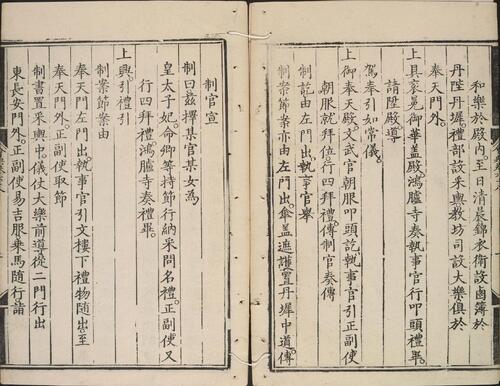 和樂於殿內至日清晨錦衣衛設鹵簿於
丹陛丹墀禮部設采輿教坊司設大樂俱於
奉天門外。
上具袞冕御華蓋殿鴻臚寺奏執事官行叩頭禮畢。
請陞殿導
駕奉引如常儀。
上御奉天殿文武官朝服叩頭訖執事官引正副使
朝服就拜位行四拜禮傳制官奏傳
制訖由左門出執事官舉
制案節案亦由左門出傘蓋遮護置丹墀中道傳
制官宣
制曰茲擇某官某女為
皇太子妃命卿等持節行納采問名禮。正副使又
行四拜禮鴻臚寺奏禮畢。
上興引禮引
制案節案由
奉天門左門出執事官引文樓下禮物隨出至
奉天門外正副使取節
制書置采輿中儀仗大樂前導從二門行出
東長安門外正副使易吉服乘馬隨行詣